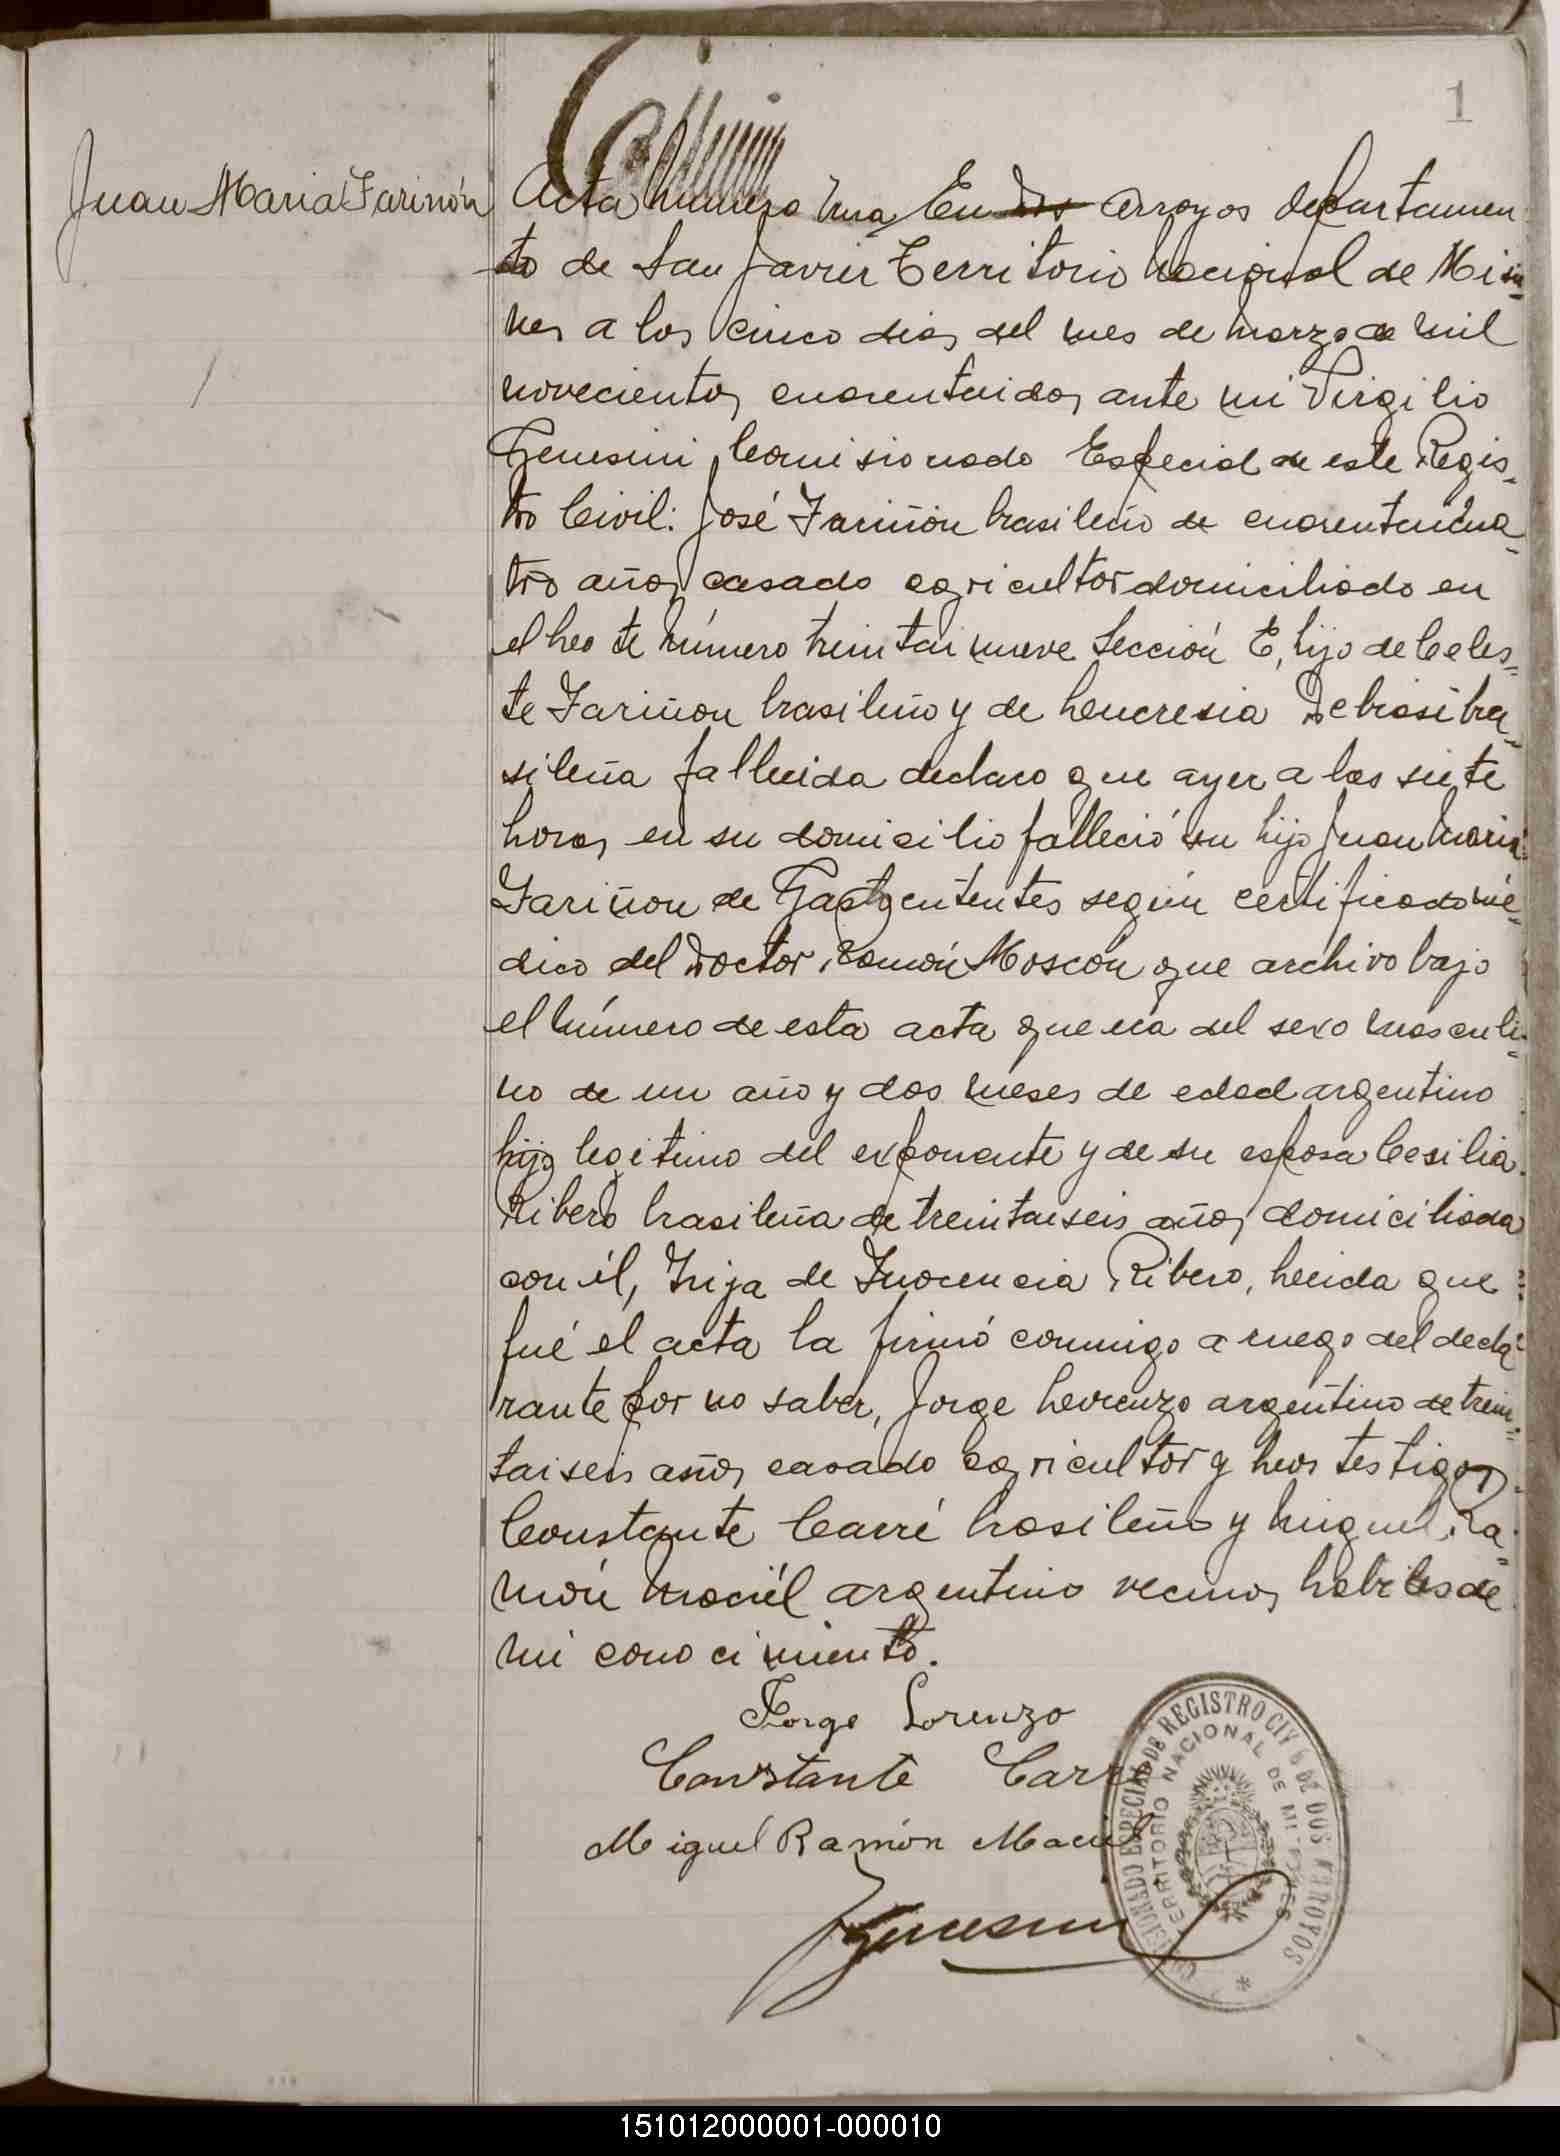 1
Juan Maria Fariñón
1
Acta Número Una En Dos Arroyos departamen
to de San Javier Territorio Nacional de Misio=
nes a los cinco dias del mes de Marzo de mil
novecientos cuarentaidos ante mi Virgilio
Genesini Comisionado Especial de este Regis=
tro Civil: José Fariñon brasileño de cuarentaicua=
tro años casado agricultor domiciliado en
el Lote Número treintai nueve Sección E, hijo de Celes=
te Fariñon brasileño y de Lucresia Debiasi bra=
sileña fallecida declaro que ayer a las siete
horas en su domicilio falleció su hijo Juan Maria
Fariñon de según certificado mé=
dico del Doctor Ramón Moscón que archivo bajo
el Número de esta acta que era del sexo masculi=
no de un año y dos meses de edad argentino
hijo legitimo del exponente y de su esposa Cesilia
Ribero brasileña de treintaiseis años domiciliada
con él, hija de Inocencia Ribero, Leida que
fué el acta la firmó conmigo a ruego del decla=
rante por no saber, Jorge Lorenzo argentino de trein=
taiseis años casado agricultor y los testigos
Constante Carré brasileño y Miguel Ra=
món Maciél argentino vecinos habiles de
mi conocimiento.
Jorge Lorenzo
Constante Carré
Miguel Ramón Maciel
Genesini
COMISIONADO ESPECIAL DE REGISTRO CIVIL DE DOS ARROYOS
TERRITORIO NACIONAL DE MISIONES
151012000001-000010